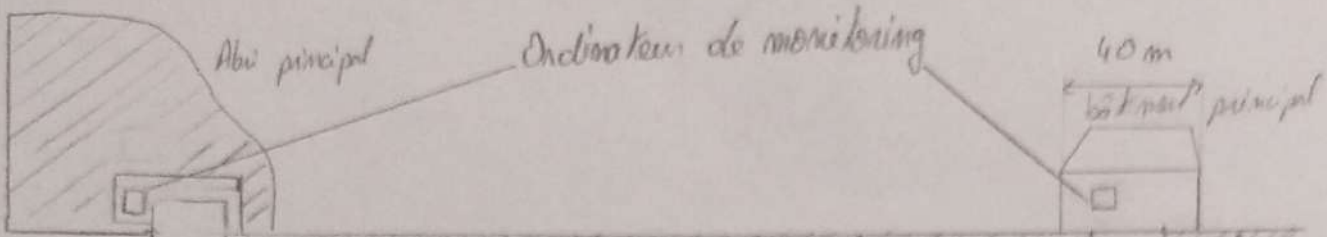 Abri principal
Ordinateur de monitoring
40 m
bâtiment principal